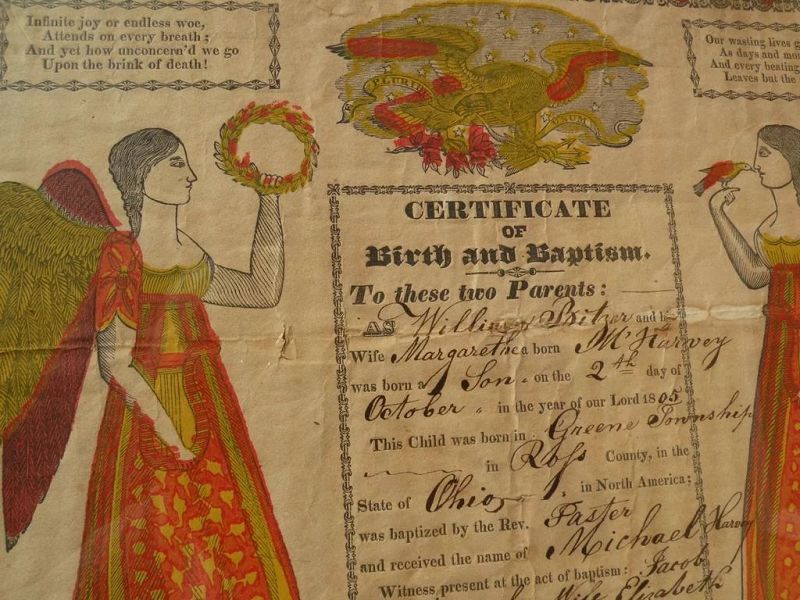 Infinite joy or endless woe,
Attends on every breath;
And yet how unconcern'd we go
Upon the brink of death!
PLURIBUS
UNUM
Our wasting lives g
As days and mo
And every beating
Leaves but the
CERTIFICATE
OF
Birth and Baptism.
To these two Parents:
AS William Bitzer and h
Wife Margarethea born McHarvey
was born a Son on the 2th day of
October in the year of our Lord 1805
This Child was born in Greene Township
in Ross County, in the
State of Ohio, in North America;
was baptized by the Rev. Paster
and received the name of Michael Harvey
Witness present at the act of baptism: Jacob
Wife Elizabeth